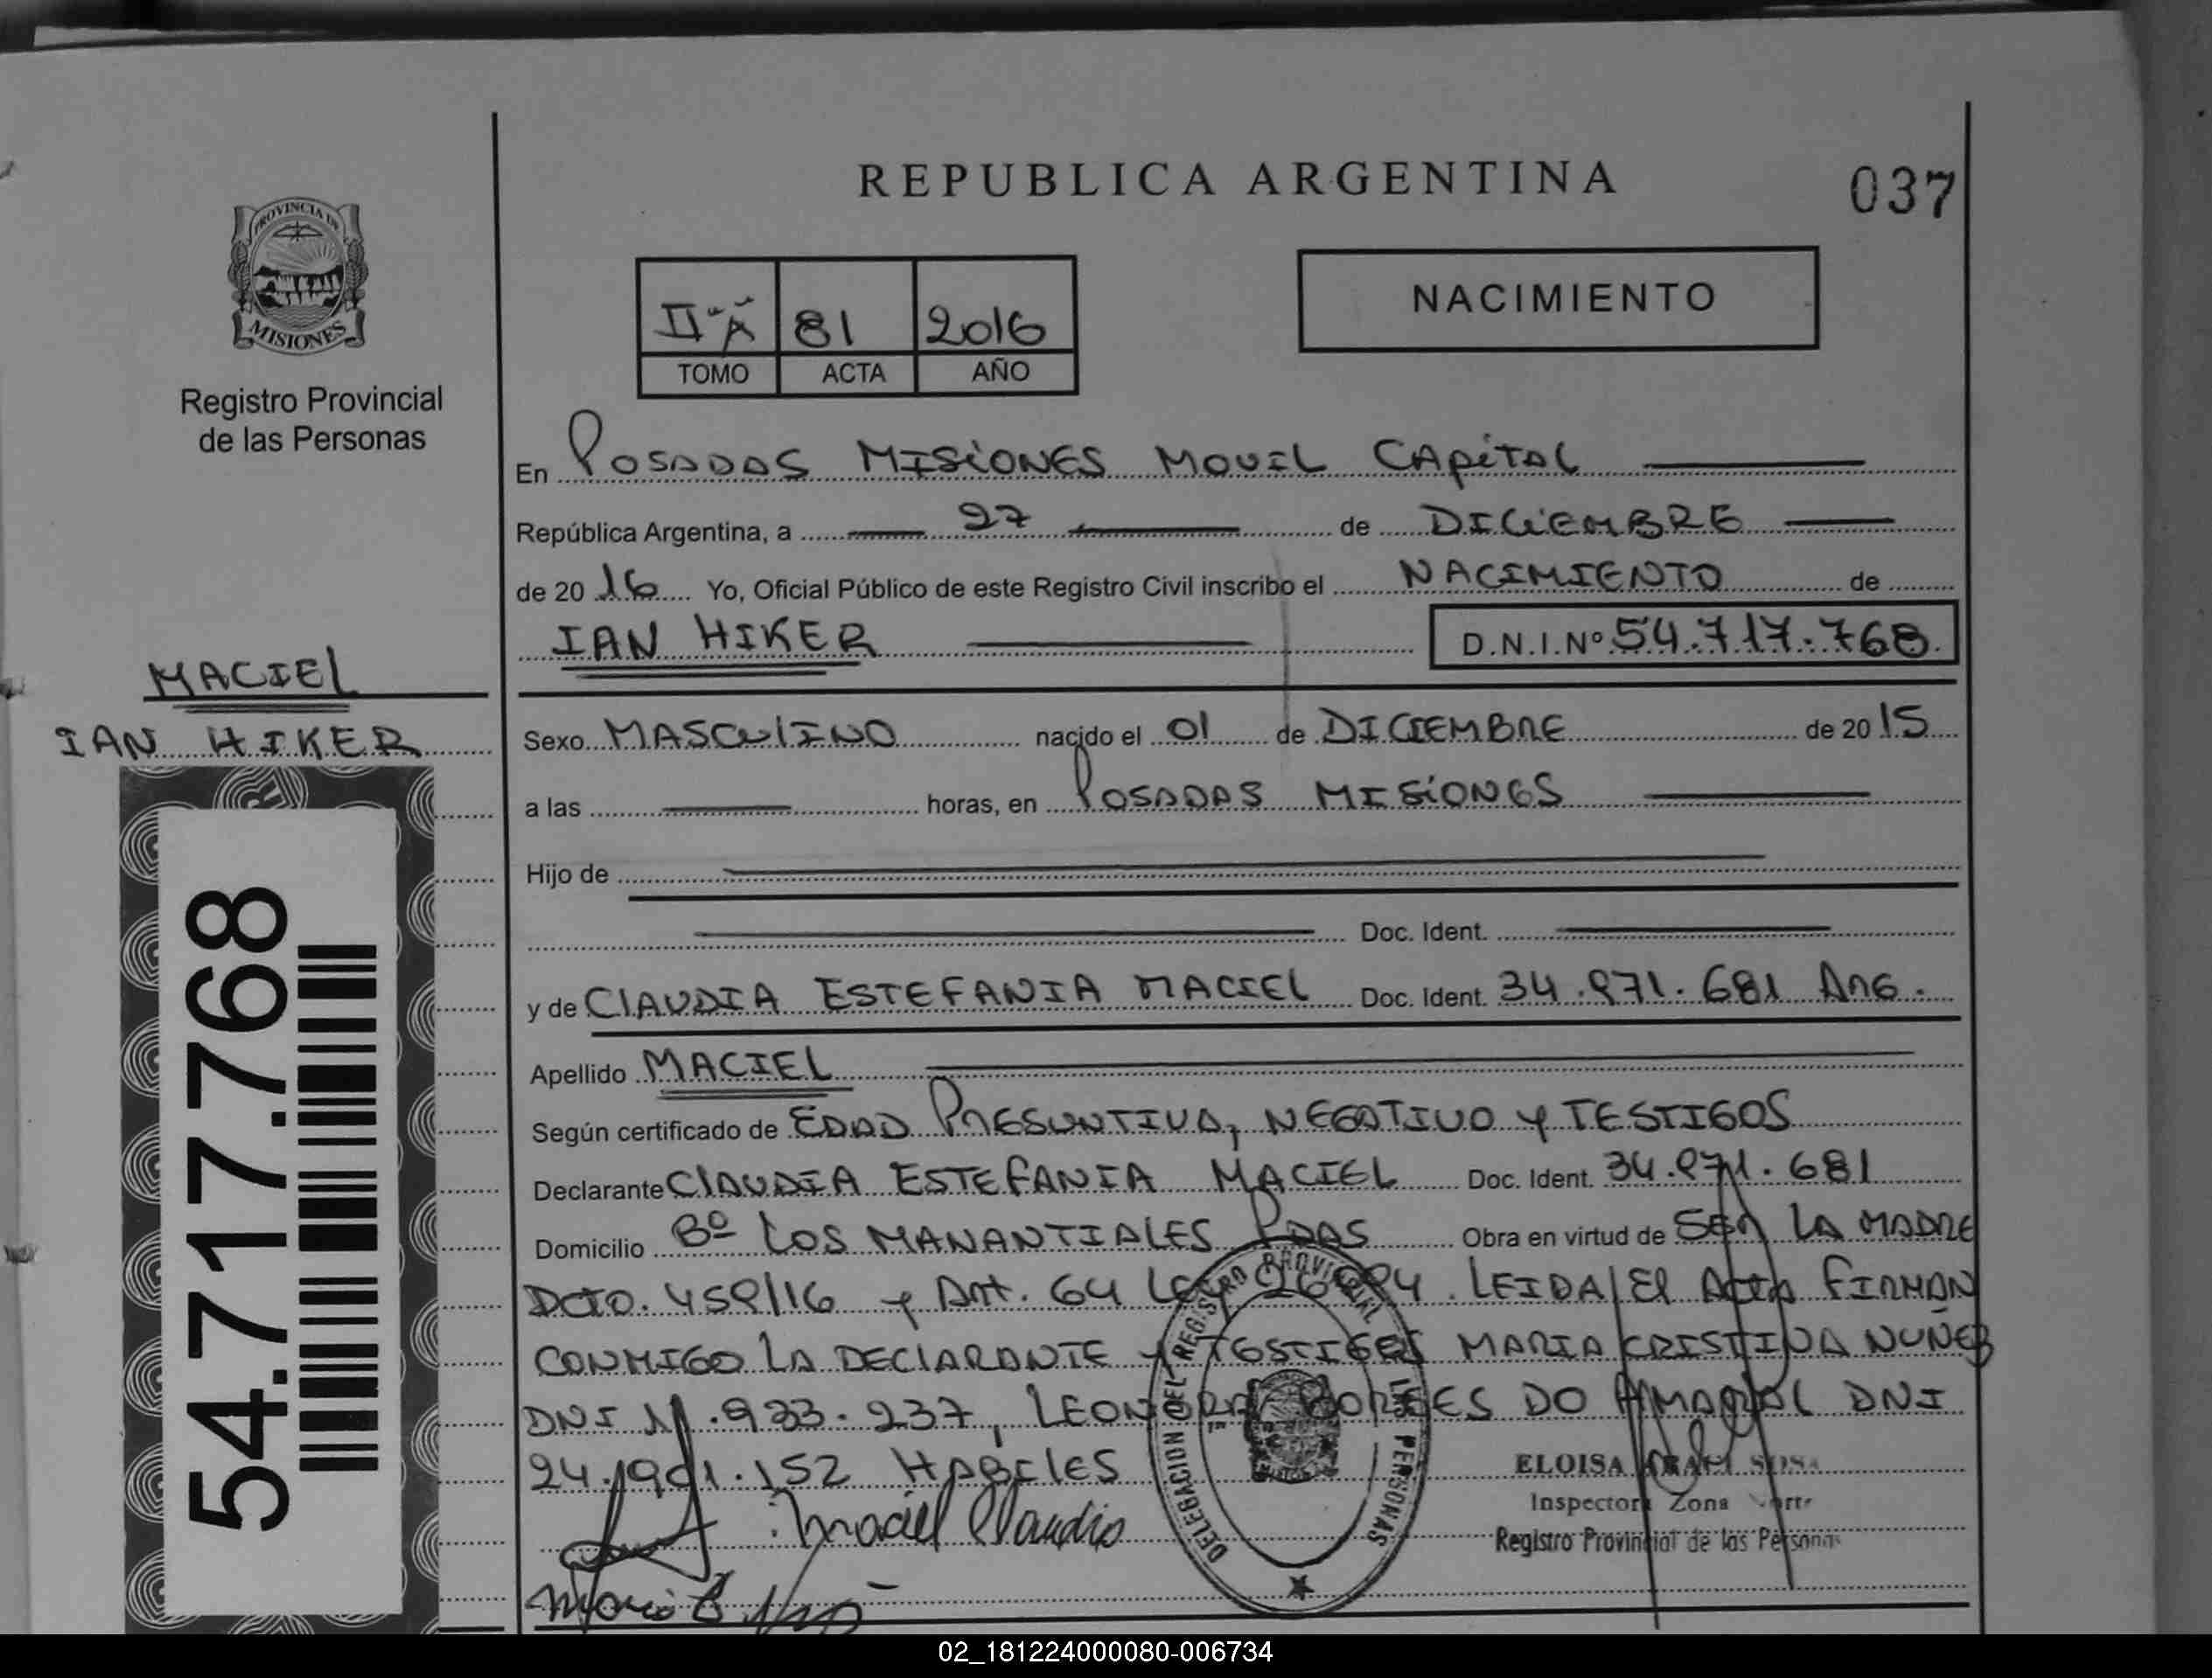 REPUBLICA ARGENTINA
037
PROVINCIA DE
MISIONES
Registro Provincial
de las Personas
II-A 81 2016
TOMO ACTA AÑO
NACIMIENTO
En POSADAS MISIONES MOVIL CAPITAL
República Argentina, a 27 de DICIEMBRE
de 2016 Yo, Oficial Público de este Registro Civil inscribo el NACIMIENTO de
IAN HIKER D.N.I.Nº 54.717.768
MACIEL
IAN HIKER
54.717.768
Sexo MASCULINO nacido el 01 de DICIEMBRE de 2015
a las horas, en POSADAS MISIONES
Hijo de
Doc. Ident.
y de CLAUDIA ESTEFANIA MACIEL Doc. Ident. 34.871.681 ARG.
Apellido MACIEL
Según certificado de EDAD PRESUNTIVA, NEGATIVO Y TESTIGOS
Declarante CLAUDIA ESTEFANIA MACIEL Doc. Ident. 34.871.681
Domicilio Bº LOS MANANTIALES PDAS Obra en virtud de SER LA MADRE
DCTO. 459/16 y Art. 64 Ley LEIDA EL ACTA FIRMAN
CONMIGO LA DECLARANTE Y TESTIGOS MARIA CRISTINA NUÑEZ
DNI 11.933.237, LEONORA BORGES DO AMARAL DNI
24.901.152 HABILES
Maciel Claudia
DELEGACION DEL REGISTRO PROVINCIAL PERSONAS
ELOISA SOSA
Inspectora Zona Norte
Registro Provincial de las Personas
02_181224000080-006734